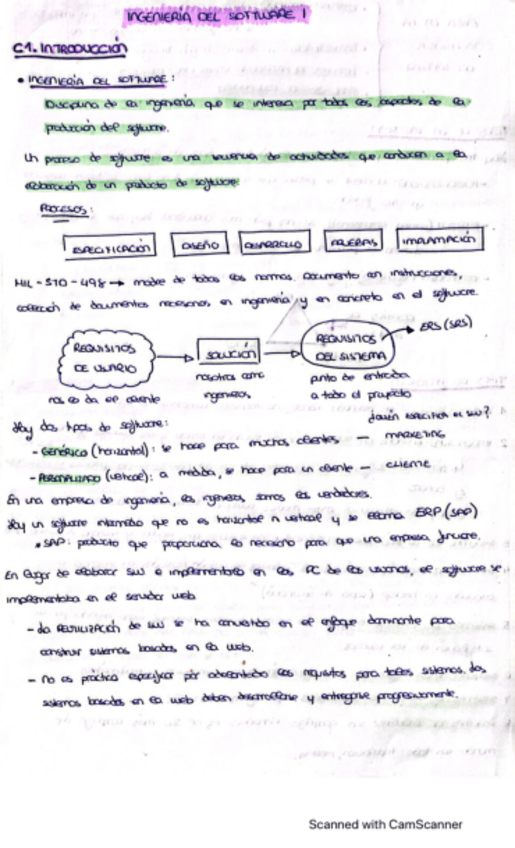 INGENIERÍA DEL SOFTWARE I
C1. INTRODUCCIÓN
• INGENIERÍA DEL SOFTWARE:
Disciplina de la ingeniería que se interesa por todos los aspectos de la
producción del software.
Un proceso de software es una secuencia de actividades que conducen a la
elaboración de un producto de software
PROCESOS:
ESPECIFICACIÓN DISEÑO DESARROLLO PRUEBAS IMPLANTACIÓN
MIL-STD-498 → madre de todas las normas. Documento con instrucciones,
colección de documentos necesarios en ingeniería y en concreto en el software
REQUISITOS DE USUARIO → SOLUCIÓN → REQUISITOS DEL SISTEMA → ERS (SRS)
nos lo da el cliente
nosotros como ingenieros
punto de entrada a todo el proyecto
¿Quién especifica el sw?
Hay dos tipos de software:
- GENÉRICO (horizontal): se hace para muchos clientes — MARKETING
- PERSONALIZADO (vertical): a medida, se hace para un cliente — CLIENTE
En una empresa de ingeniería, los ingenieros somos los vendedores.
Hay un software intermedio que no es horizontal n vertical y se llama ERP (SAP)
• SAP: producto que proporciona lo necesario para que una empresa funcione.
En lugar de elaborar sw e implementarlo en los PC de los usuarios, el software se
implementaba en el servidor web
- La REUTILIZACIÓN de sw se ha convertido en el enfoque dominante para
construir sistemas basados en la web.
- no es práctico especificar por adelantado los requisitos para tales sistemas. Los
sistemas basados en la web deben desarrollarse y entregarse progresivamente.
Scanned with CamScanner